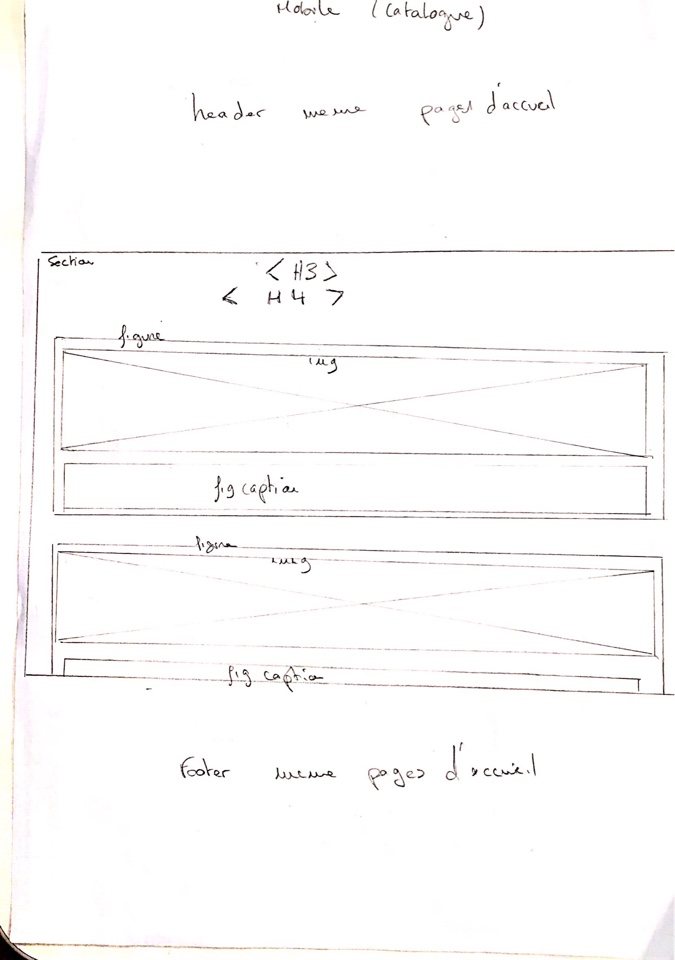 Mobile (Catalogue)
header meme pages d'accueil
Section
< H3 >
< H4 >
figure
img
fig caption
figure
img
fig caption
Footer meme pages d'accueil